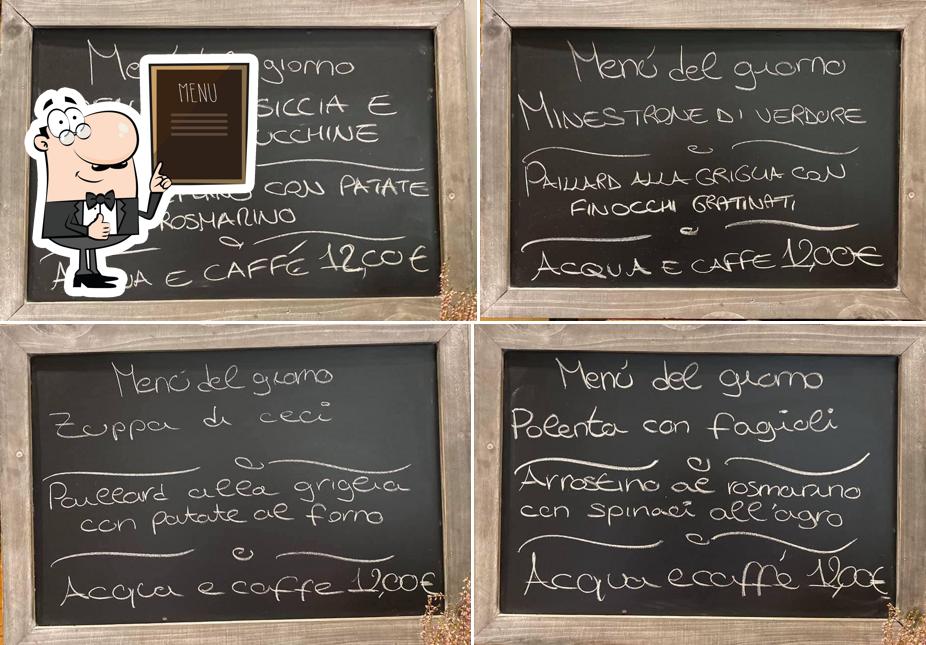 Menù del giorno
SICCIA E
UCCHINE
CON PATATE
ROSMARINO
E CAFFÉ 12,00€
MENU
Menù del giorno
MINESTRONE DI VERDURE
e
PAILLARD ALLA GRIGLIA CON
FINOCCHI GRATINATI
e
ACQUA E CAFFE 12,00€
Menù del giorno
Zuppa di ceci
e
Paillard alla griglia
con patate al forno
e
Acqua e caffe 12,00€
Menù del giorno
Polenta con fagioli
e
Arrostino al rosmarino
con spinaci all'agro
e
Acqua e caffé 12,00€